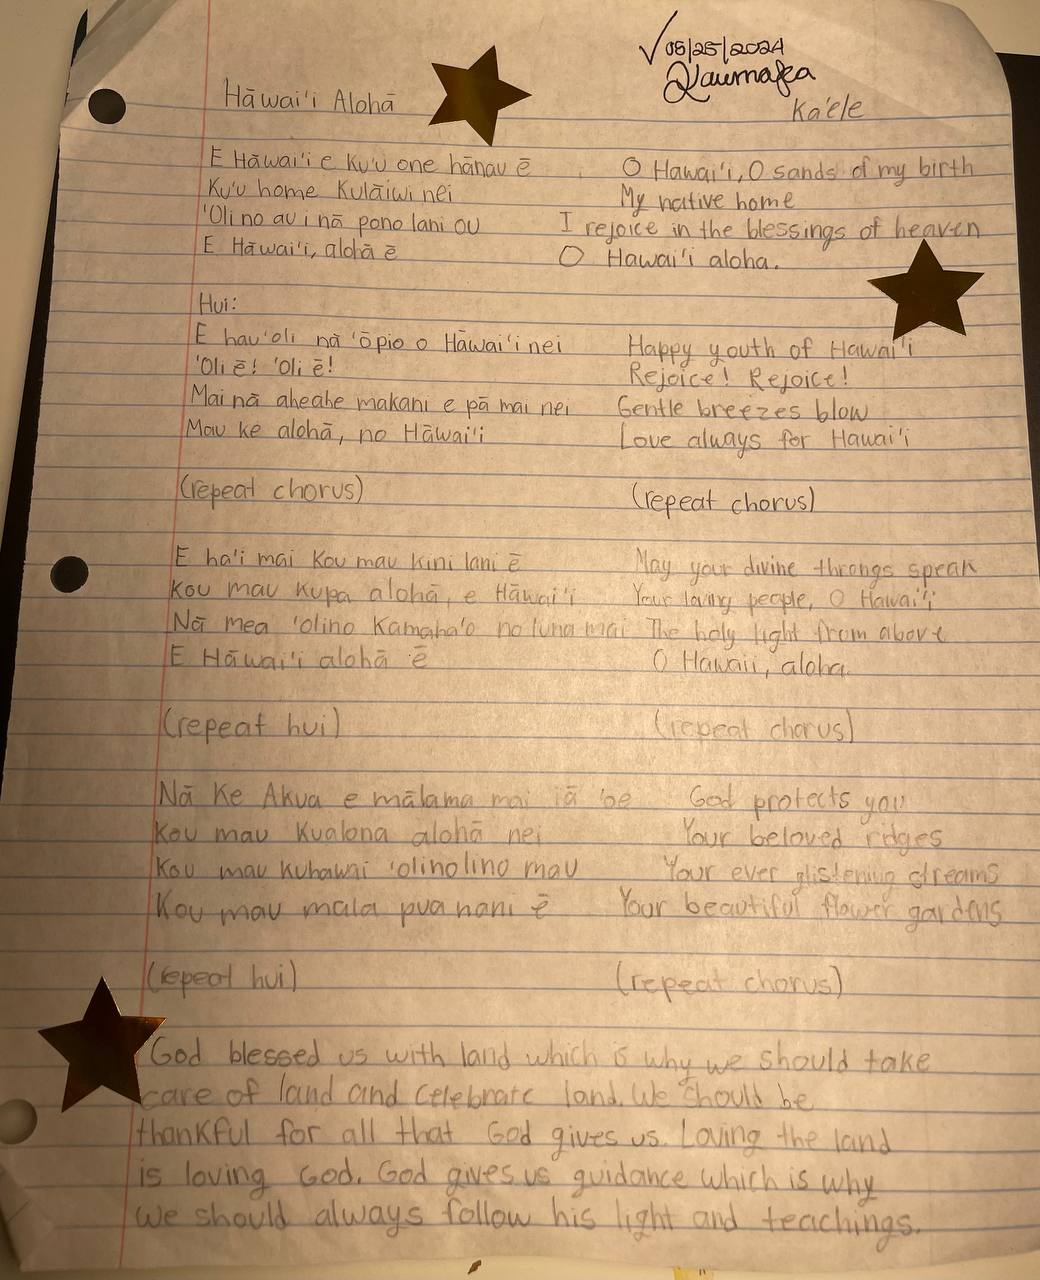 ✓ 05/25/2024
Kaumaka
Hāwai'i Alohā
Ka'ele
E Hāwai'i e Ku'u one hānau ē O Hawai'i, O sands of my birth
Ku'u home Kulāiwi nei My native home
'Oli no au i nā pono lani ou I rejoice in the blessings of heaven
E Hāwai'i, alohā ē O Hawai'i aloha.
Hui:
E hau'oli nā 'ōpio o Hāwai'i nei Happy youth of Hawai'i
'Oli ē! 'Oli ē! Rejoice! Rejoice!
Mai nā aheahe makani e pā mai nei Gentle breezes blow
Mau ke alohā, no Hāwai'i Love always for Hawai'i
(repeat chorus) (repeat chorus)
E ha'i mai Kou mau kini lani ē May your divine throngs speak
Kou mau Kupa alohā, e Hāwai'i Your loving people, O Hawai'i
Nā mea 'olino Kamaha'o no luna mai The holy light from above
E Hāwai'i alohā ē O Hawaii, aloha.
(repeat hui) (repeat chorus)
Nā Ke Akua e mālama mai iā 'oe God protects you
Kou mau Kualona alohā nei Your beloved ridges
Kou mau kuhawai 'olinolino mau Your ever glistening streams
Kou mau mala pua nani ē Your beautiful flower gardens
(repeat hui) (repeat chorus)
God blessed us with land which is why we should take
care of land and celebrate land. We should be
thankful for all that God gives us. Loving the land
is loving God. God gives us guidance which is why
we should always follow his light and teachings.